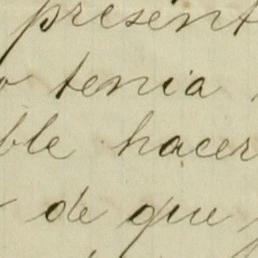 present
o tenia
ble hacer
de que